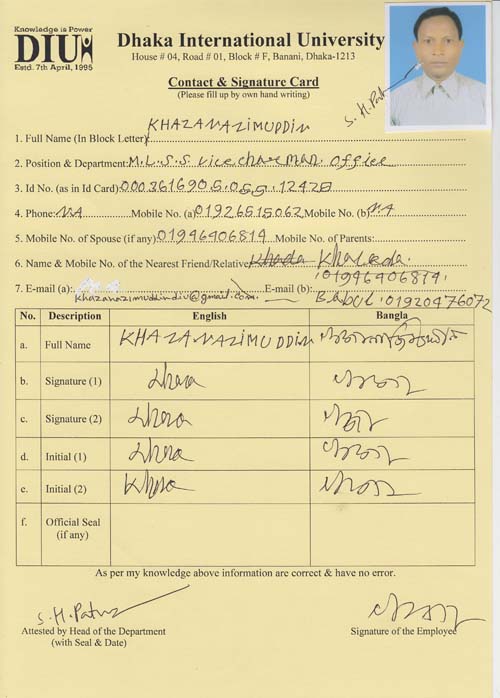 Knowledge is Power
DIU
Estd. 7th April, 1995
Dhaka International University
House # 04, Road # 01, Block # F, Banani, Dhaka-1213
Contact & Signature Card
(Please fill up by own hand writing)
1. Full Name (In Block Letter) KHAZANAZIMUDDIN
2. Position & Department: M.L.S.S vice chare man office
3. Id No. (as in Id Card) 0003616905.055.12420
4. Phone: NA Mobile No. (a) 01926515062, Mobile No. (b) NA
5. Mobile No. of Spouse (if any) 01946406814 Mobile No. of Parents:
6. Name & Mobile No. of the Nearest Friend/Relative Khaleda
01946406814.
7. E-mail (a): khazanazimuddindiu@gmail.com. E-mail (b): Babul: 01920476072
No. Description English Bangla
a. Full Name KHAZANAZIMUDDIN
b. Signature (1)
c. Signature (2)
d. Initial (1)
e. Initial (2)
f. Official Seal
(if any)
As per my knowledge above information are correct & have no error.
Attested by Head of the Department
(with Seal & Date)
Signature of the Employee